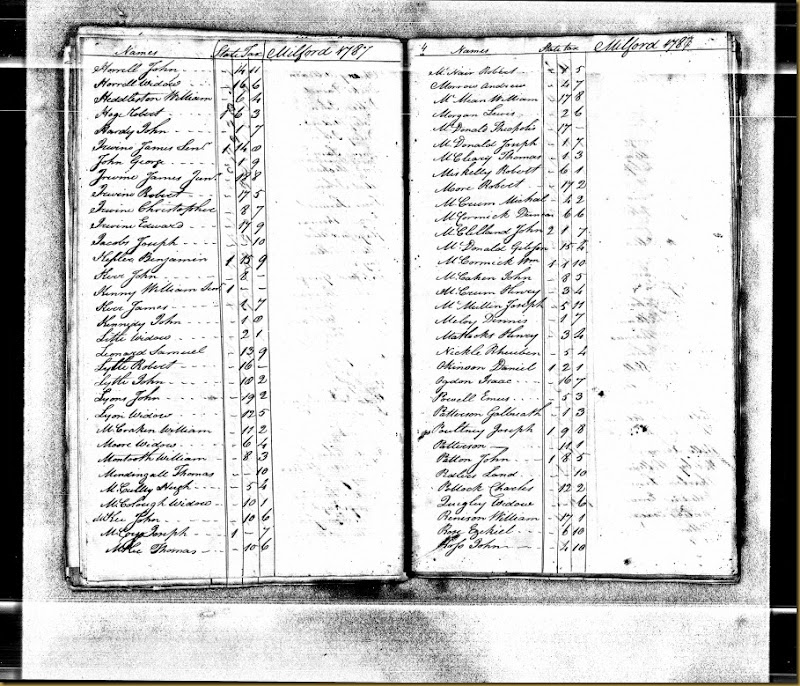 Names State Tax Milford 1787
Horrell John - 4 11
Horrell Widow - 16 6
Heddleston William - 6 4
Hage Robert 6 3
Hardy John 7
Irwine James Senr 14 8
John George 1 9
Irwine James Junr 18 8
Irwine Robert - 17 5
Irwine Christopher 8 7
Irwine Edward - 17 9
Jacobs Joseph - - 10
Benjamin 1 15 9
Kerr John - 8 -
Kinny William 1 - -
Kerr James - 2 7
Kennedy John - 1 8
Little Widow - 2 1
Leonard Samuel - 13 9
Lytle Robert - 16 -
Lytle John - 10 2
Lyons John - 19 2
Lyon Widow - 12 5
McCraken William - 17 2
Moore Widow - 6 4
Montooth William - 8 3
Mendingall Thomas - - 10
McCulley Hugh - 5 4
McColough Widow - 10 1
McKee John - 10 6
McCoye Joseph 1 - 7
McKee Thomas - 10 6
4 Names State tax Milford 1787
McNair Robert - 5
Morrow Andrew - 4 7
McMean William - 17 8
Morgan Lewis - 2 6
McDonald - 17 -
McDonald Joseph - 1 7
McCleary Thomas - 1 3
Miskelly Robert - 6 1
Moore Robert - 17 2
McCrum Michal - 4 2
McCormick Duncan - 6 6
McClelland John 2 1 7
McDonald - 15 4
McCormick Wm 1 1 10
McCaken John - 8 5
McCrum Henry - 3 4
McMullin Joseph - 5 11
Meloy Dinnis - 1 7
Matlocks Henry - 3 4
Nickle Rheuben - 5 4
Okinson Daniel 1 2 1
Ogdon Isaac - 16 7
Powell Emus - 5 3
Patterson Galbreath - 1 3
Poultney Joseph 1 9 8
Patterson - 11 1
Patton John 1 8 5
Land - - 10
Pollock Charles - 12 2
Quigley Widow - - 6
Renison William - 17 1
Rose Ezekiel - 6 10
Ross John - 4 10